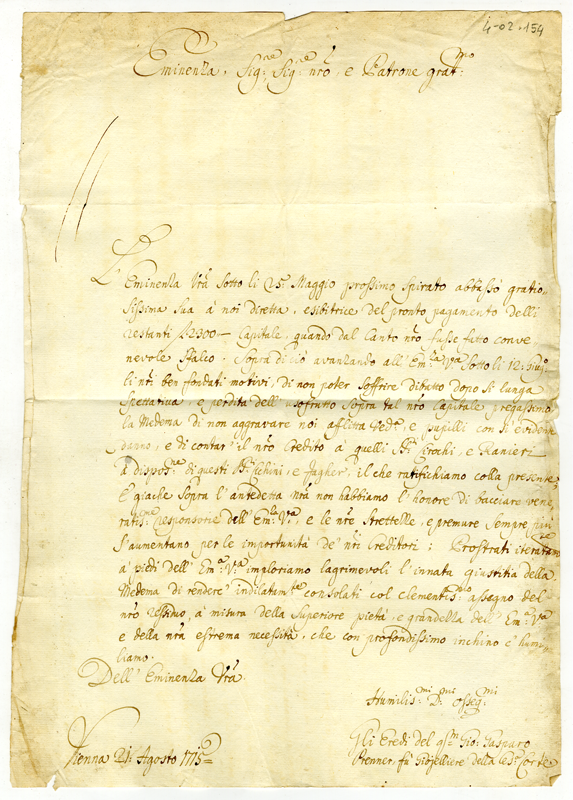 4-02.154
Eminenza, Sig:re Sig:re nrõ, e Patrone grat:mo
L'Eminenza Vrã sotto li 25 Maggio prossimo spirato abbassò gratio-
sissima sua à noi diretta, esibitrice del pronto pagamento delli
restanti 2300 Capitale, quando dal Canto nrõ fusse fatto conve-
nevole Stalco. Sopra di ciò avanzando all'Em:za Vrã sotto li 12: Giug:
li nri ben fondati motivi, di non poter soffrire difatto dopo si lunga
spettativa, e perdita dell'usofrutto sopra tal nrõ Capitale pregassimo
la Medema di non aggravare noi afflitta Ved:a e pupilli con si evidente
danno, e di contar il nrõ Credito à quelli SS:ri Crochi, e Ranieri
à dispos:ne di questi SS:ri e il che ratifichiamo colla presente.
E giache sopra l'antedetta nrã non habbiamo l'honore di bacciare vene-
ratis:me responsorie dell'Em:za V:a, e le nrẽ strettezze, e premure sempre più
s'aumentano per le importunità de' nri Creditori; Prostrati iteratam:te
à piedi dell'Em:a V:a imploriamo lagrimevoli l'innata giustitia della
Medema di rendere indilatam:te consolati col clementis:mo assegno del
nrõ residuo, à misura della superiore pietà, e grandezza dell'Em:a V:a
e della nrã estrema necessità, che con profondissimo inchino c'humi-
liamo.
Dell'Eminenza Vrã
Humilis:mi D:mi osseq:mi
Gli Eredi del qm Gio: Gasparo
Renner, fù Giojelliere della Ces:a Corte
Vienna 21: Agosto 1715